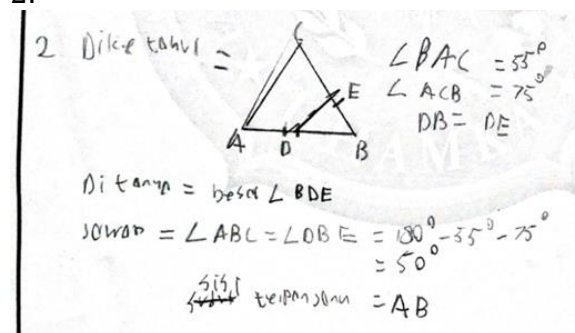 2.
2 Diketahui =
C
A D B
E
∠BAC = 55°
∠ACB = 75°
DB = DE
Ditanya = besar ∠BDE
Jawab = ∠ABC = ∠DBE = 180° - 55° - 75°
= 50°
sisi terpanjang = AB